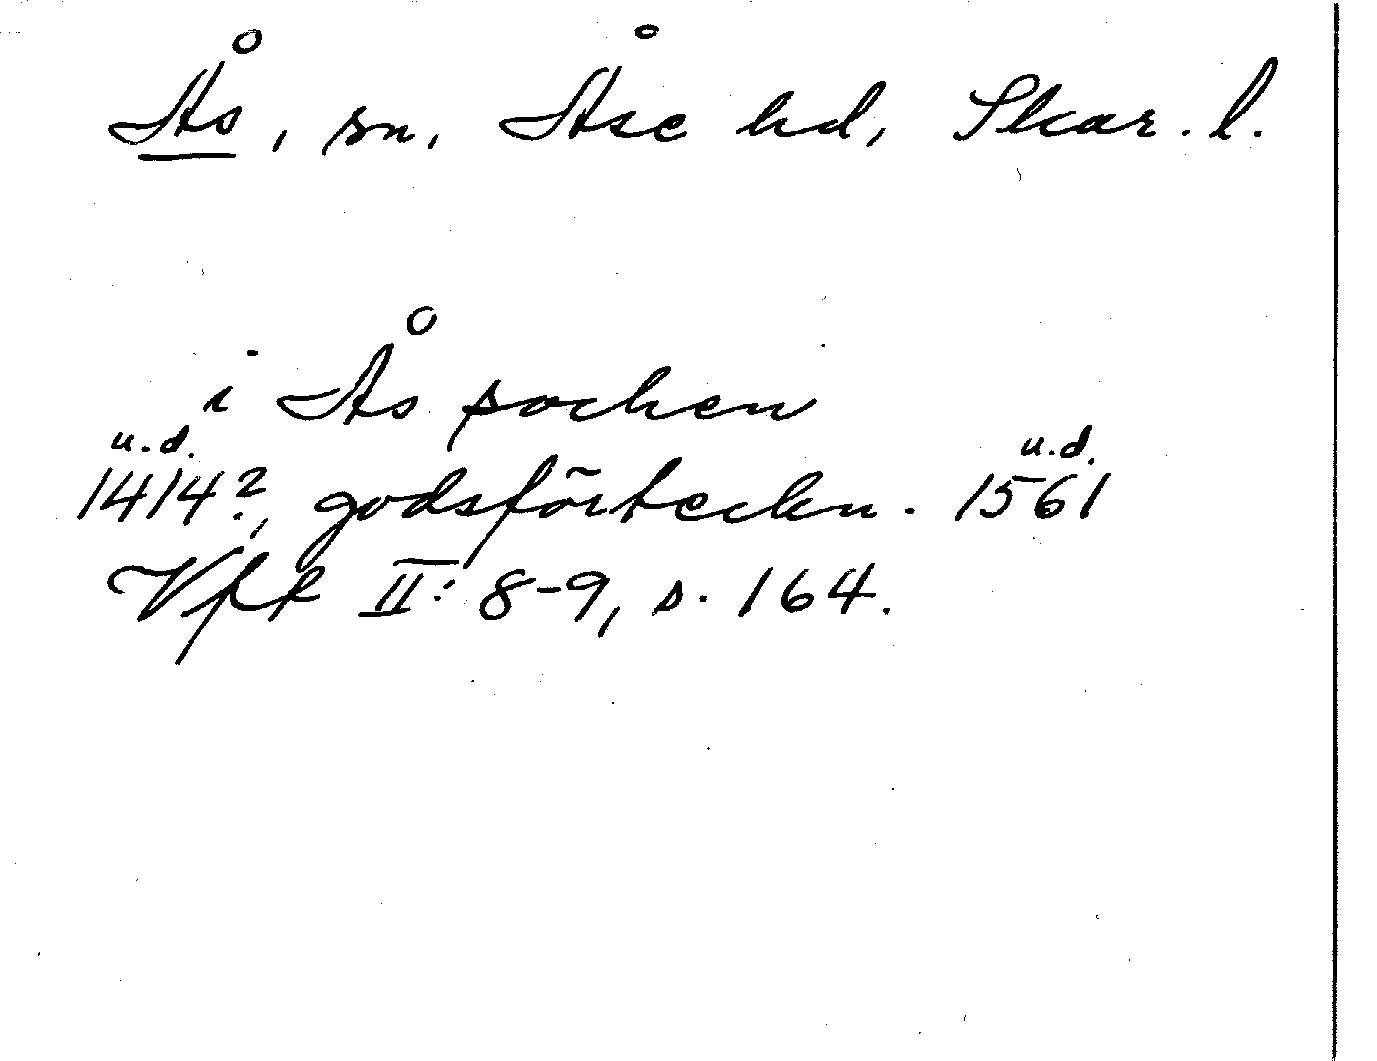 Ås, sn, Åse hd, Skar. l.
i Ås sochen
u.d. u.d.
1414?, godsförteckn. 1561
Vff II: 8-9, s. 164.